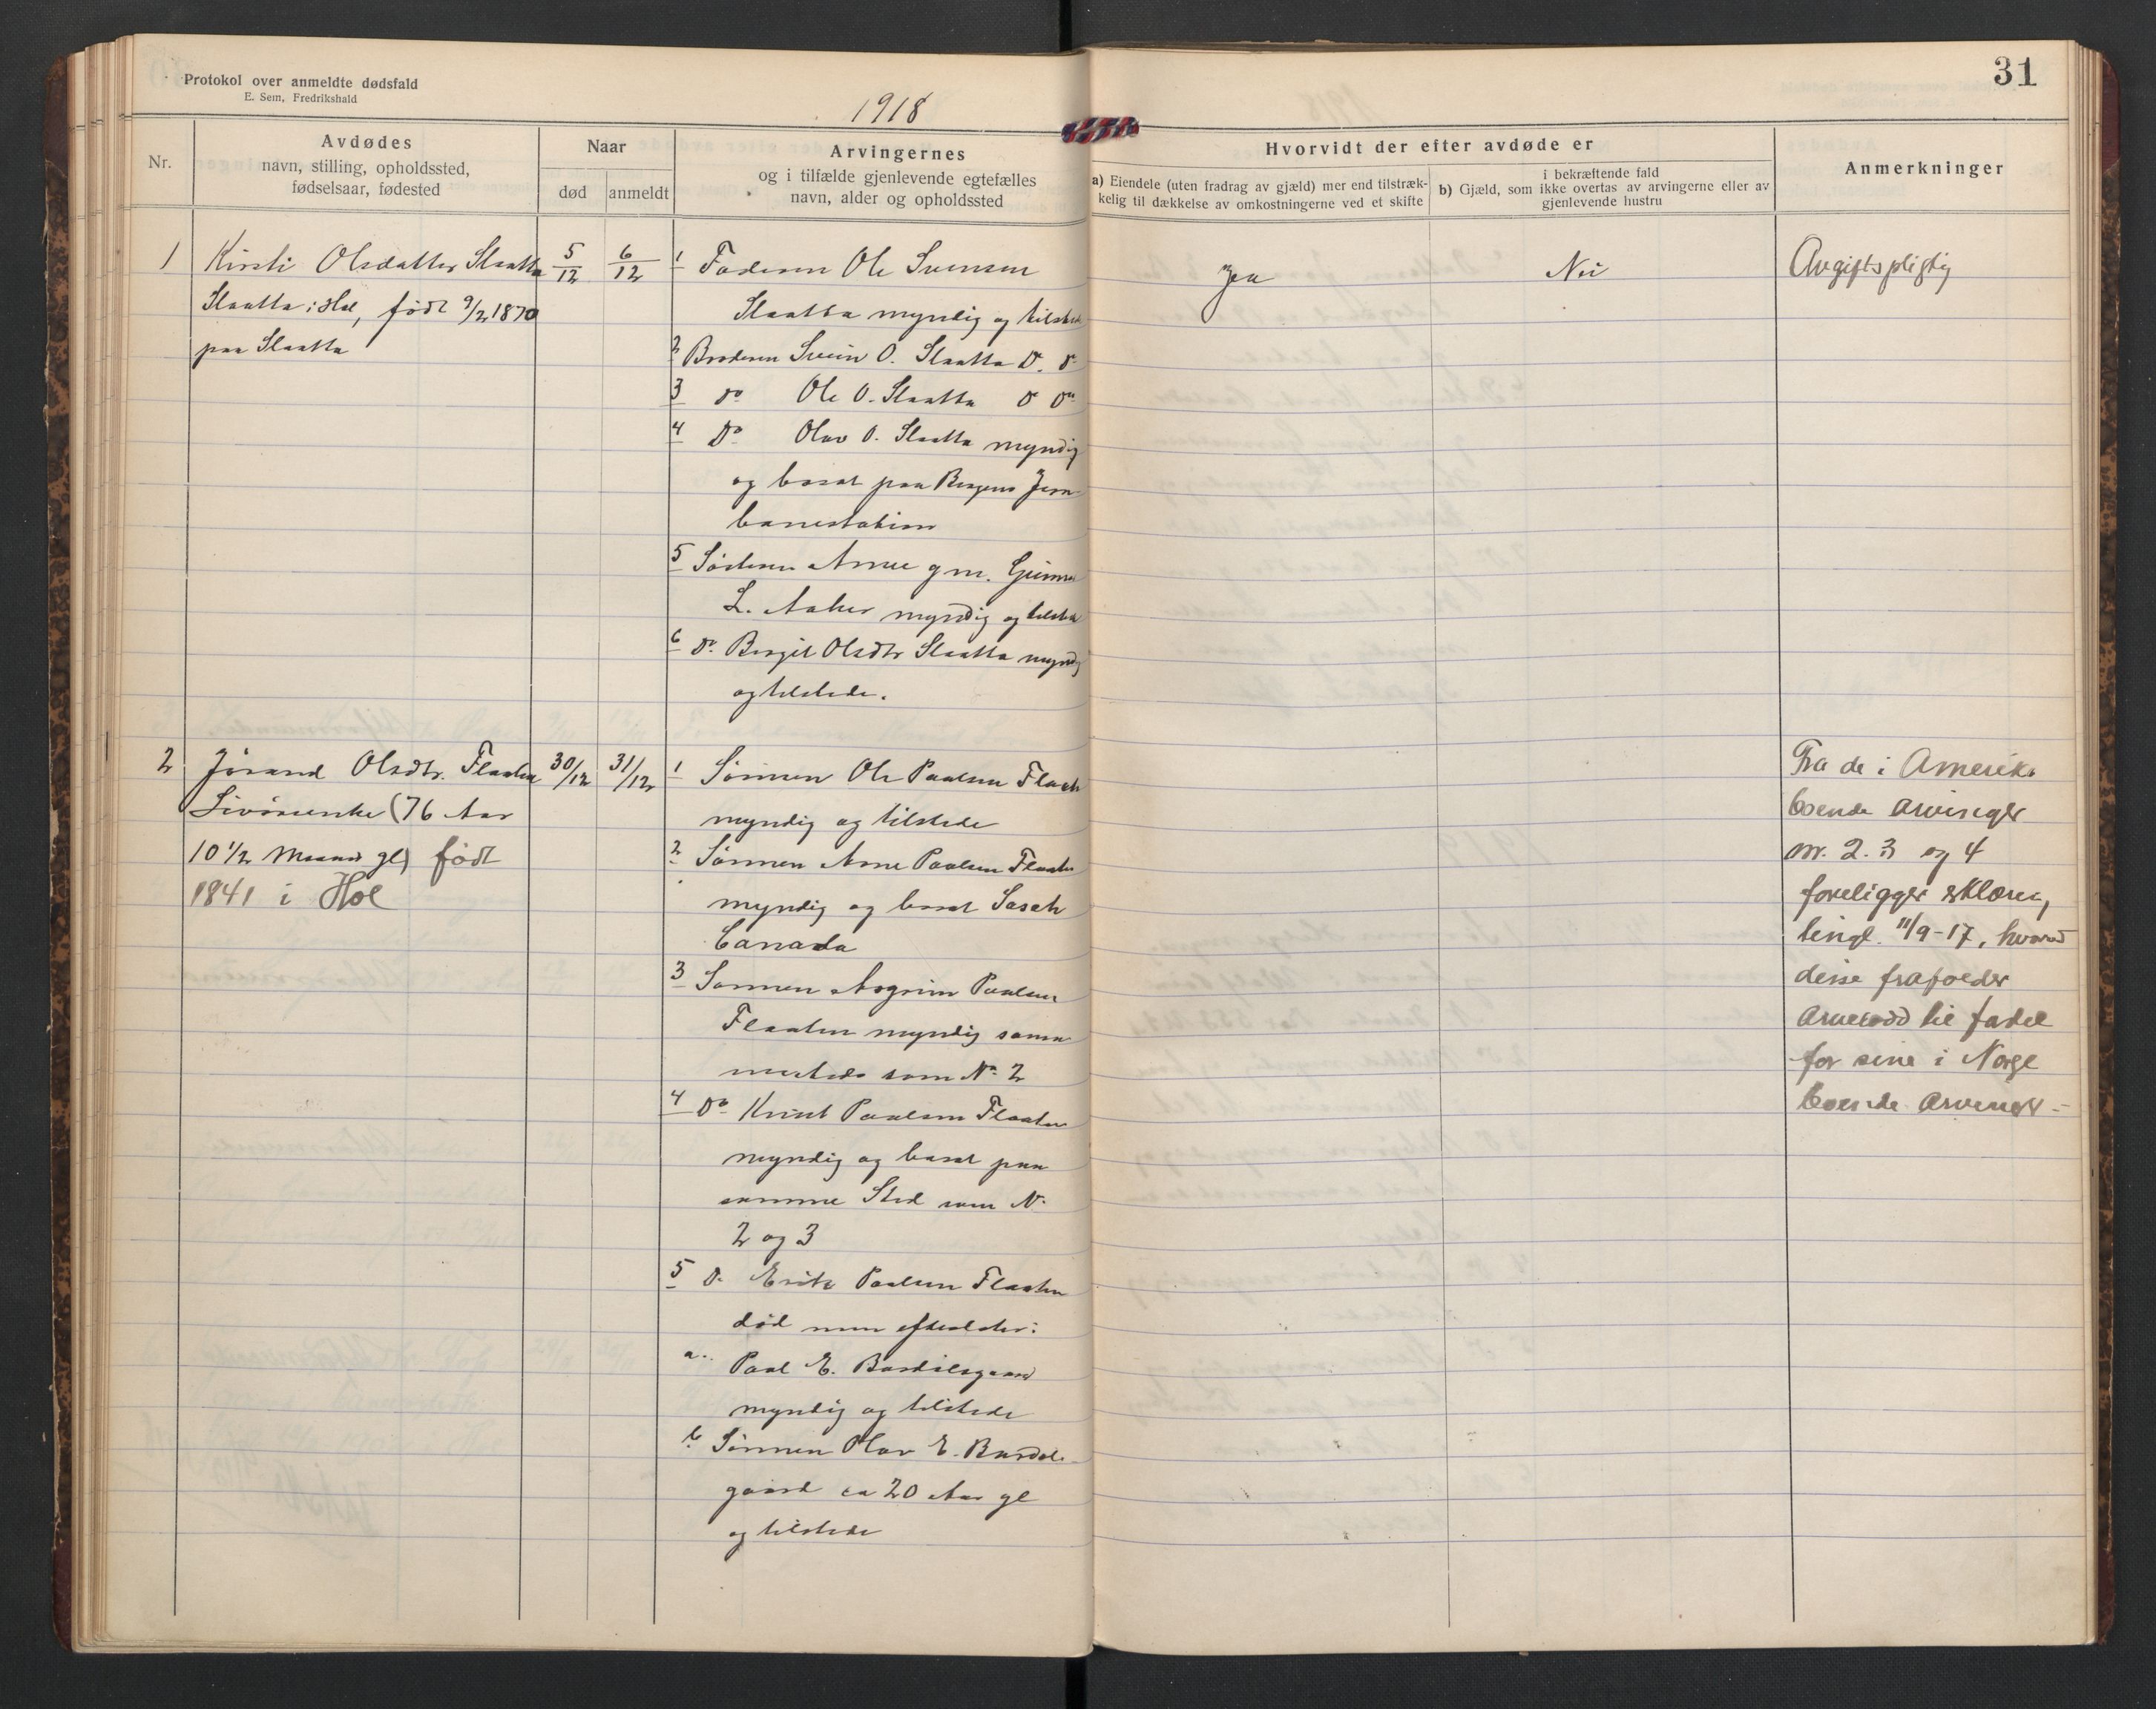 Protokol over anmeldte dødsfald
E. Sem, Fredrikshald
1918
31
Nr.
Avdødes
navn, stilling, opholdssted,
fødselsaar, fødested
Naar
død
anmeldt
Arvingernes
og i tilfælde gjenlevende egtefælles
navn, alder og opholdssted
Hvorvidt der efter avdøde er
a) Eiendele (uten fradrag av gjæld) mer end tilstræk-
kelig til dækkelse av omkostningerne ved et skifte
i bekræftende fald
b) Gjæld, som ikke overtas av arvingerne eller av
gjenlevende hustru
Anmerkninger
1
Kirsti Olsdatter Slaatta
Slaatta i Hol, født 9/2 1870
paa Slaatta
5/12
6/12
1 Faderen Ole Svensen
Slaatta myndig og tilstede
2 Broderen Svein O. Slaatta Do. do
3 do Ole O. Slaatta do do
4 Do Olav O. Slaatta myndig
og bosat paa Bergens Jern-
banestation
5 Søsteren Anne g m. Gunnar
L. Aaker myndig og tilstede
6 Do. Birgit Olsdtr Slaatta myndig
og tilstede.
Jea
Nei
Avgiftspligtig
2
Jørand Olsdtr. Flaaten
Livørenke (76 Aar
10 1/2 Maaned gl) født
1841 i Hol
30/12
31/12
1 Sønnen Ole Paalsen Flaaten
myndig og tilstede
2 Sønnen Arne Paalsen Flaaten
myndig og bosat Sask
Canada
3 Sønnen Asgrim Paalsen
Flaaten myndig samme
som No 2
4 Do Knut Paalsen Flaaten
myndig og bosat paa
samme Sted som No
2 og 3
5 Do Erik Paalsen Flaaten
død men efterlater:
a. Paal E. Bardalsgaard
myndig og tilstede
b. Sønnen Olav E. Bardals-
gaard ca 20 Aar gl
og tilstede
Fra de i Amerika
boende arvinger
nr. 2. 3 og 4
foreligger erklæring,
tingl. 11/9-17, hvorved
disse frafalder
arvelodd til fordel
for sine i Norge
boende arvinger -